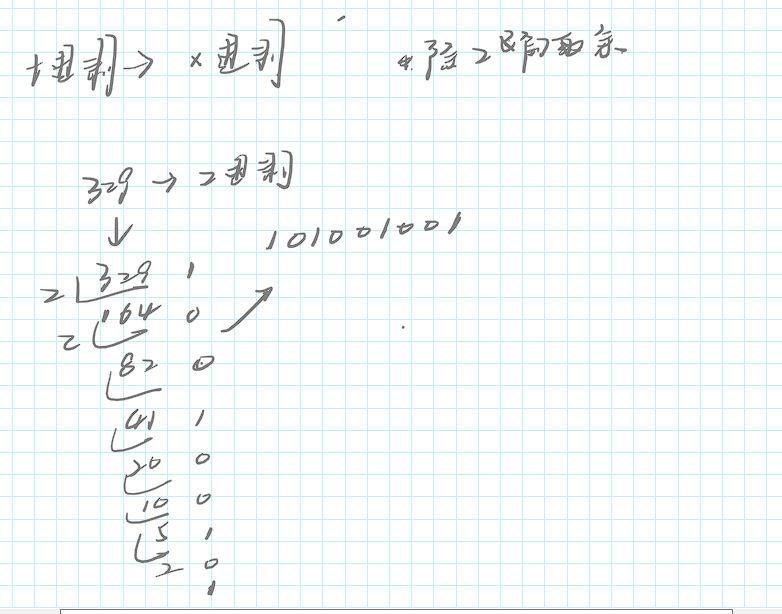 十进制→ x进制 *除2倒取余
329→2进制
↓
101001001
2 329 1
2 164 0
82 0
41 1
20 0
10 0
5 1
2 0
1